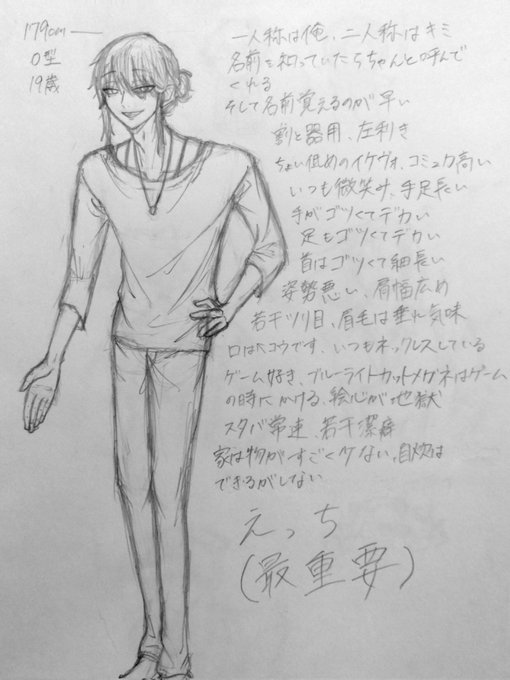 179cm
O型
19歳
一人称は俺、二人称はキミ
名前を知っていたらちゃんと呼んで
くれる
そして名前覚えるのが早い
割と器用、左利き
ちょい低めのイケヴォ、コミュ力高い
いつも微笑み、手足長い
手がゴツくてデカい
足もゴツくてデカい
首はゴツくて細長い
姿勢悪い、肩幅広め
若干ツリ目、眉毛は垂れ気味
口はヘコウです、いつもネックレスしている
ゲーム好き、ブルーライトカットメガネはゲーム
の時にかける、絵心が地獄
スタバ常連、若干潔癖
家は物がすごく少ない、自炊は
できるがしない
えっち
(最重要)